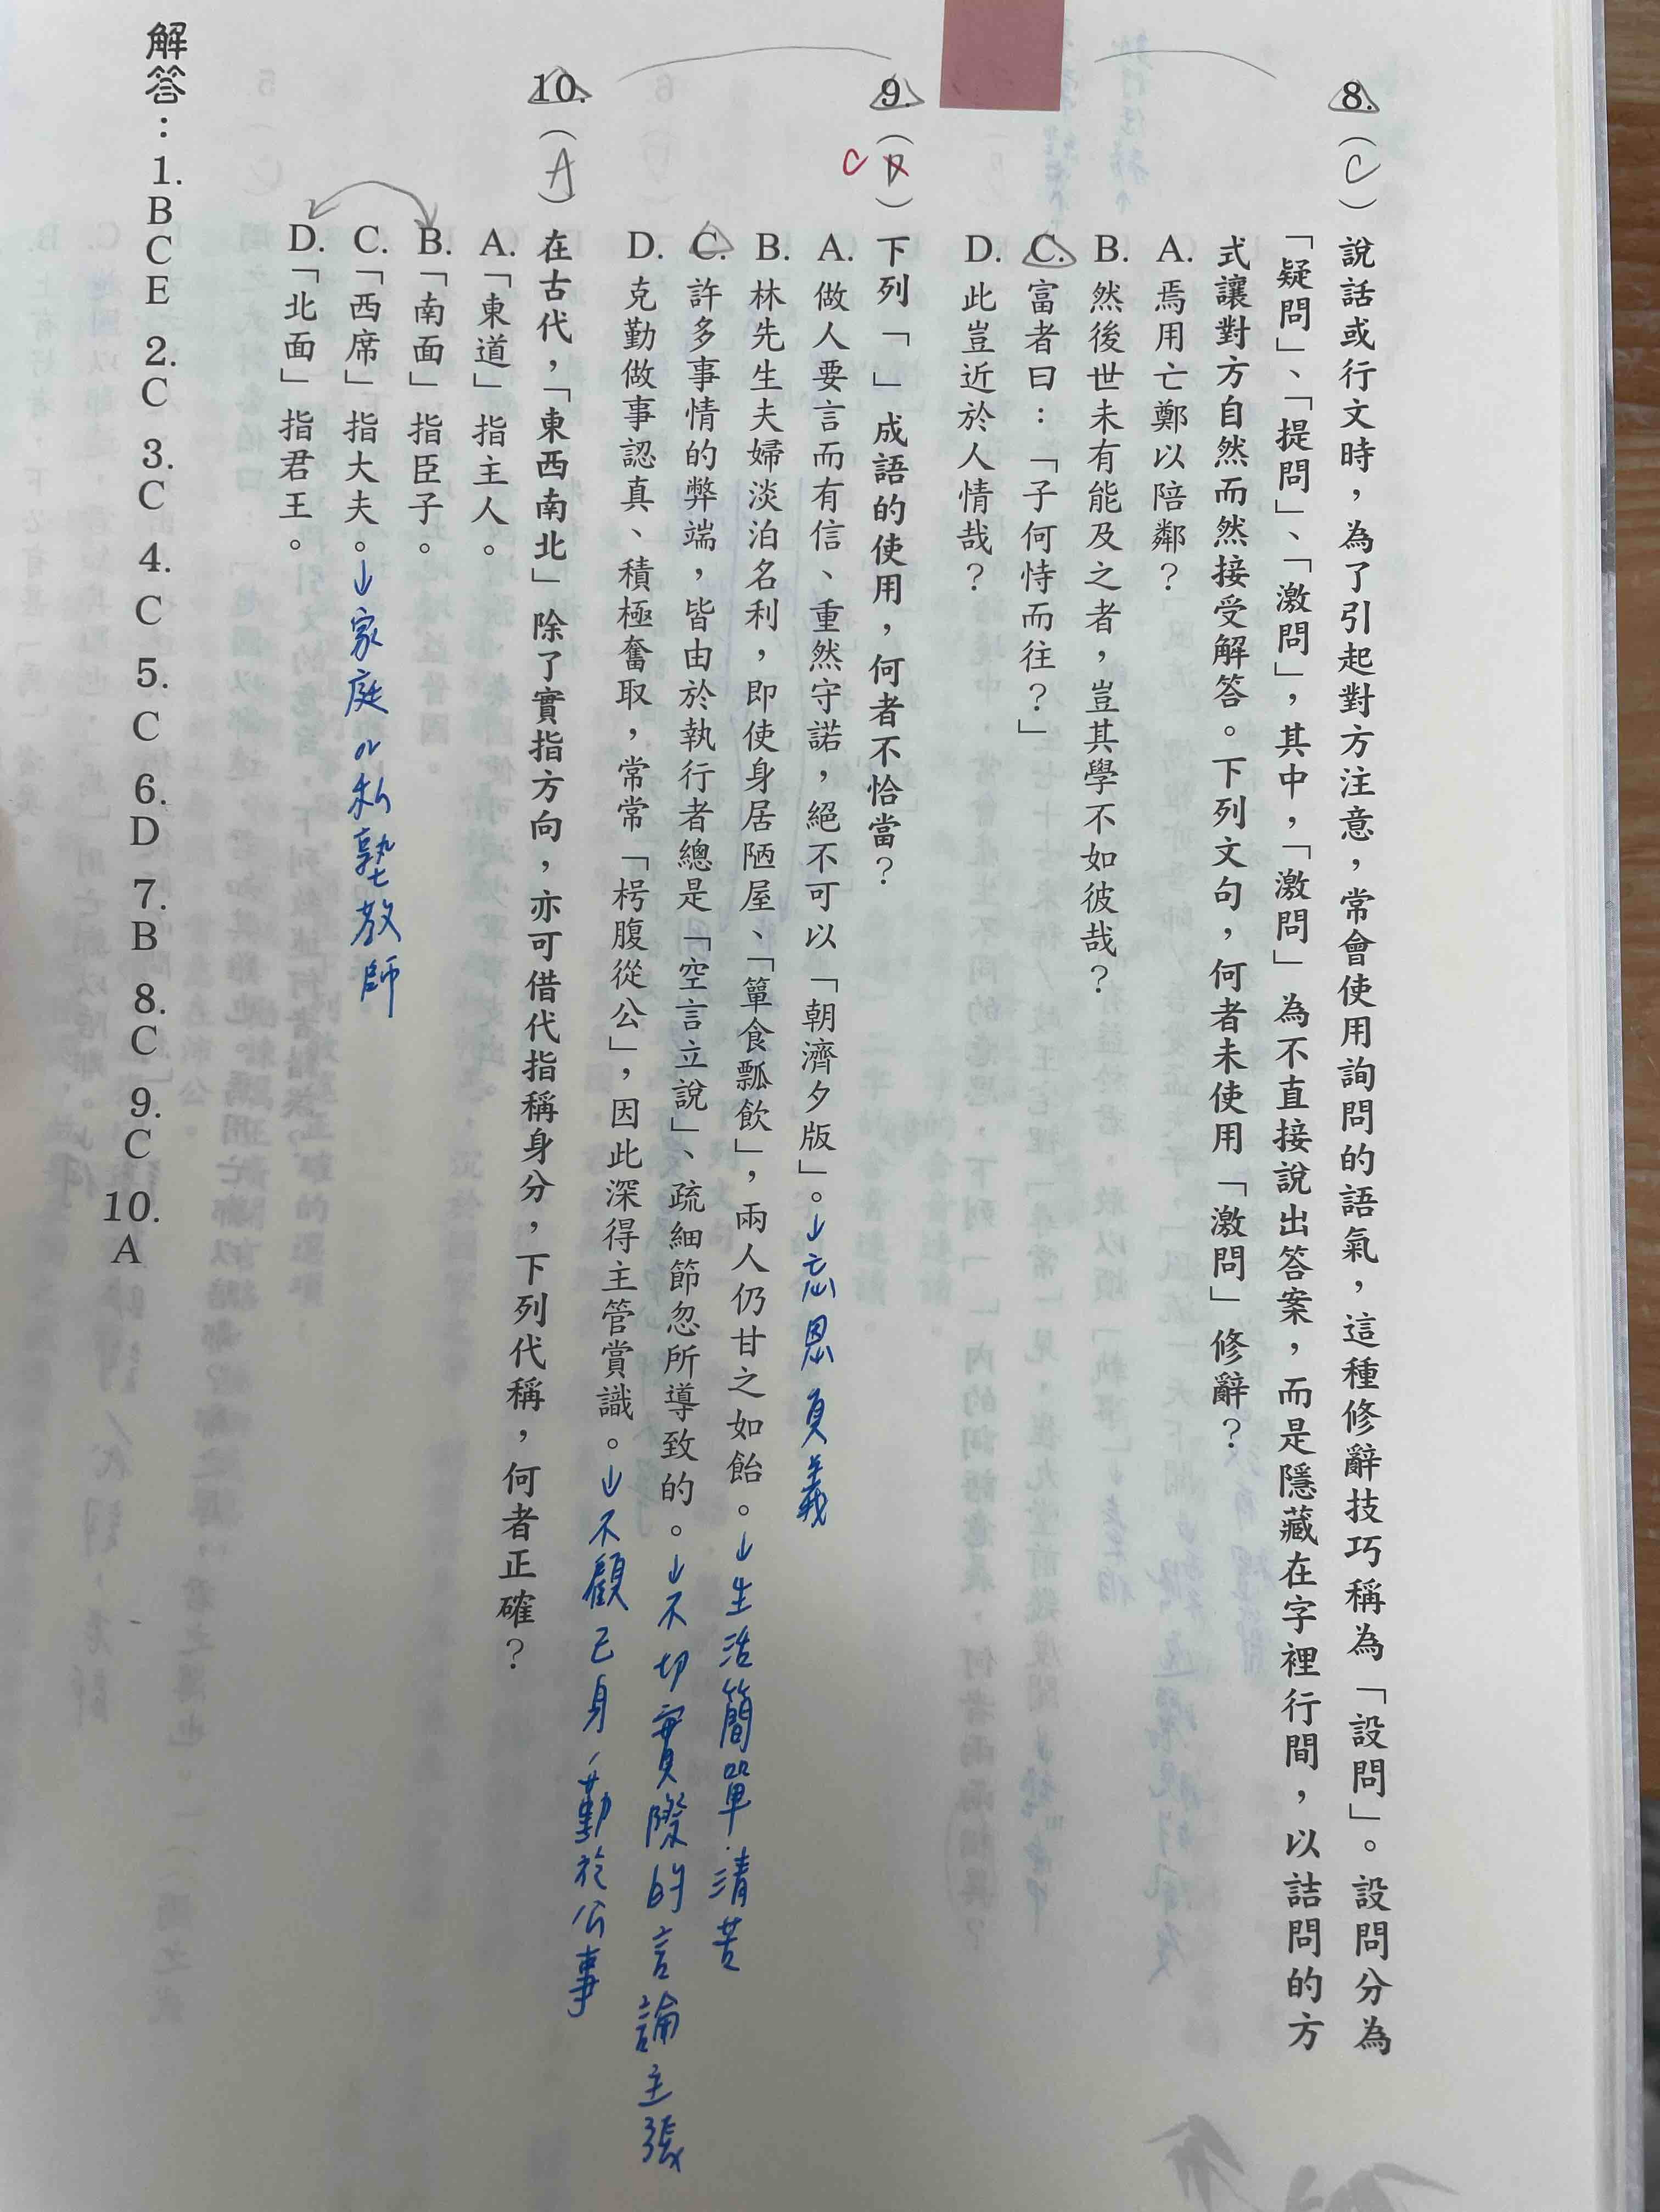 8.(C)說話或行文時，為了引起對方注意，常會使用詢問的語氣，這種修辭技巧稱為「設問」。設問分為
「疑問」、「提問」、「激問」，其中，「激問」為不直接說出答案，而是隱藏在字裡行間，以詰問的方
式讓對方自然而然接受解答。下列文句，何者未使用「激問」修辭？
A.焉用亡鄭以陪鄰？
B.然後世未有能及之者，豈其學不如彼哉？
C.富者曰：「子何恃而往？」
D.此豈近於人情哉？
9.(C)下列「 」成語的使用，何者不恰當？
A.做人要言而有信、重然守諾，絕不可以「朝濟夕版」。↓忘恩負義
B.林先生夫婦淡泊名利，即使身居陋屋、「簞食瓢飲」，兩人仍甘之如飴。↓生活簡單清苦
C.許多事情的弊端，皆由於執行者總是「空言立說」、疏細節忽所導致的。↓不切實際的言論主張
D.克勤做事認真、積極奮取，常常「枵腹從公」，因此深得主管賞識。↓不顧己身，勤於公事
10.(A)在古代，「東西南北」除了實指方向，亦可借代指稱身分，下列代稱，何者正確？
A.「東道」指主人。
B.「南面」指臣子。
C.「西席」指大夫。↓家庭or私塾教師
D.「北面」指君王。
解答：1.BCE 2.C 3.C 4.C 5.C 6.D 7.B 8.C 9.C 10.A